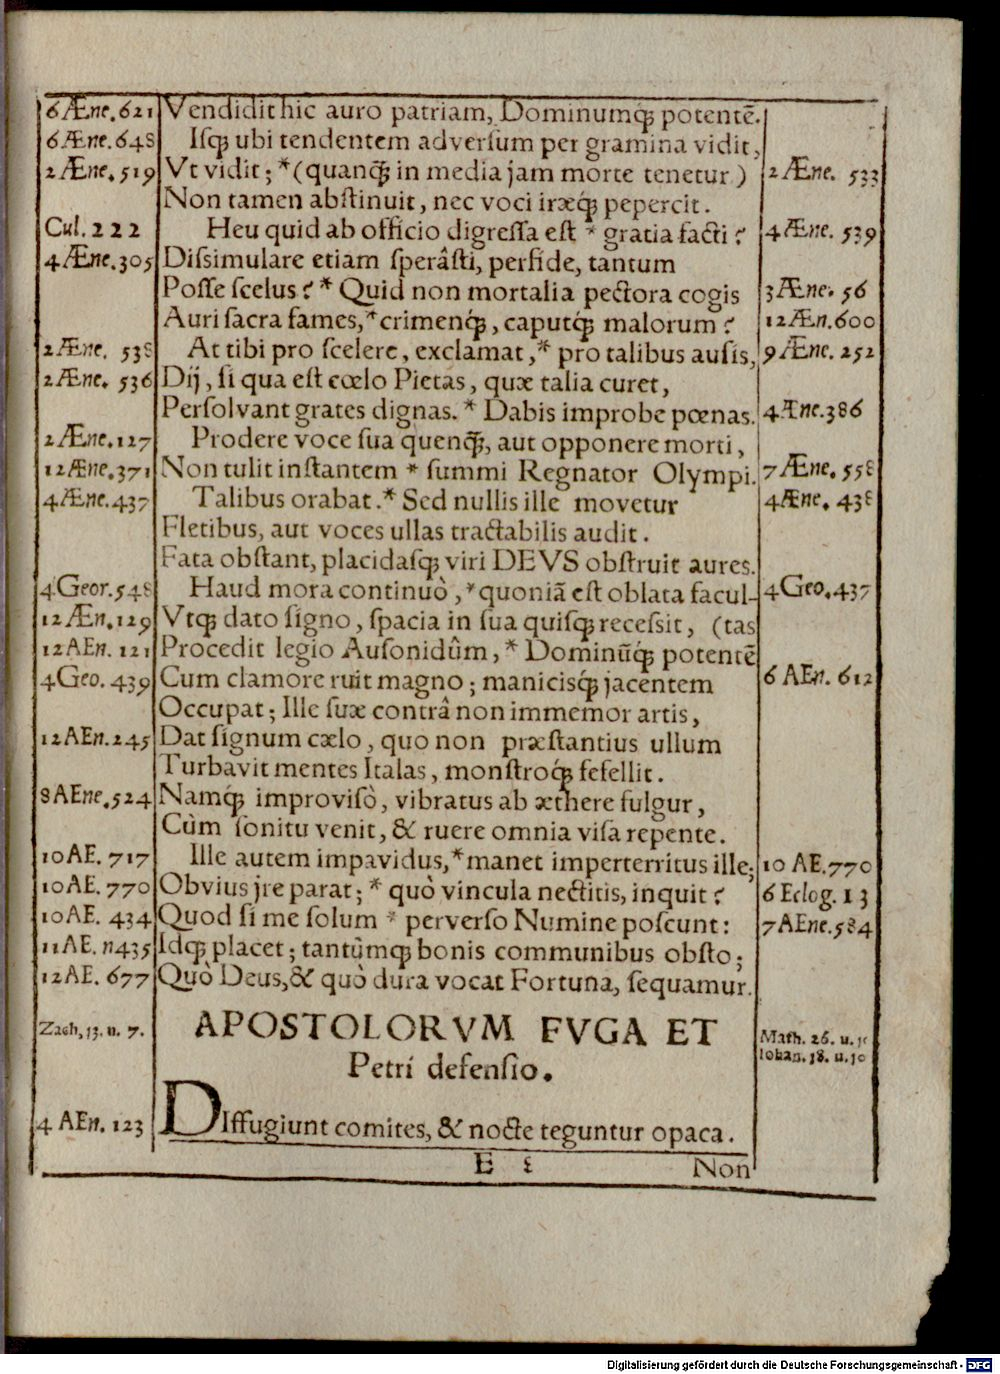 6 Æne. 621 Vendidit hic auro patriam, Dominumq́; potentẽ.
6 Æne. 648 Isq́; ubi tendentem adversum per gramina vidit,
2 Æne. 519 Vt vidit; *(quanq́; in media jam morte tenetur) 2 Æne. 533
Non tamen abstinuit, nec voci iræq́; pepercit.
Cul. 222 Heu quid ab officio digressa est * gratia facti? 4 Æne. 539
4 Æne. 305 Dissimulare etiam sperâsti, perfide, tantum
Posse scelus? * Quid non mortalia pectora cogis 3 Æne. 56
Auri sacra fames, * crimenq́;, caputq́; malorum? 12 Æn. 600
2 Æne. 538 At tibi pro scelere, exclamat, * pro talibus ausis, 9 Æne. 252
2 Æne. 536 Dij, si qua est cœlo Pietas, quæ talia curet,
Persolvant grates dignas. * Dabis improbe pœnas. 4 Æne. 386
2 Æne. 127 Prodere voce sua quenq́;, aut opponere morti,
12 Æne. 371 Non tulit instantem * summi Regnator Olympi. 7 Æne. 558
4 Æne. 437 Talibus orabat. * Sed nullis ille movetur 4 Æne. 438
Fletibus, aut voces ullas tractabilis audit.
Fata obstant, placidasq́; viri DEVS obstruit aures.
4 Geor. 548 Haud mora continuò, * quoniã est oblata facul- 4 Geo. 437
12 Æn. 129 Vtq́; dato signo, spacia in sua quisq́; recessit, (tas
12 AEn. 121 Procedit legio Ausonidûm, * Dominũq́; potentẽ
4 Geo. 439 Cum clamore ruit magno; manicisq́; jacentem 6 AEn. 612
Occupat; Ille suæ contrâ non immemor artis,
12 AEn. 245 Dat signum cælo, quo non præstantius ullum
Turbavit mentes Italas, monstroq́; fefellit.
8 AEne. 524 Namq́; improvisò, vibratus ab æthere fulgur,
Cùm sonitu venit, & ruere omnia visa repente.
10 AE. 717 Ille autem impavidus, * manet imperterritus ille; 10 AE. 770
10 AE. 770 Obvius jre parat; * quò vincula nectitis, inquit? 6 Eclog. 13
10 AE. 434 Quod si me solum * perverso Numine poscunt: 7 AEne. 584
11 AE. n435 Idq́; placet; tantùmq́; bonis communibus obsto;
12 AE. 677 Quò Deus, & quò dura vocat Fortuna, sequamur.
Zach, 13. u. 7. APOSTOLORVM FVGA ET Math. 26. u.
Petri defensio. Iohan. 18. u. 10
4 AEn. 123 DIffugiunt comites, & nocte teguntur opaca.
E Non
Digitalisierung gefördert durch die Deutsche Forschungsgemeinschaft - DFG